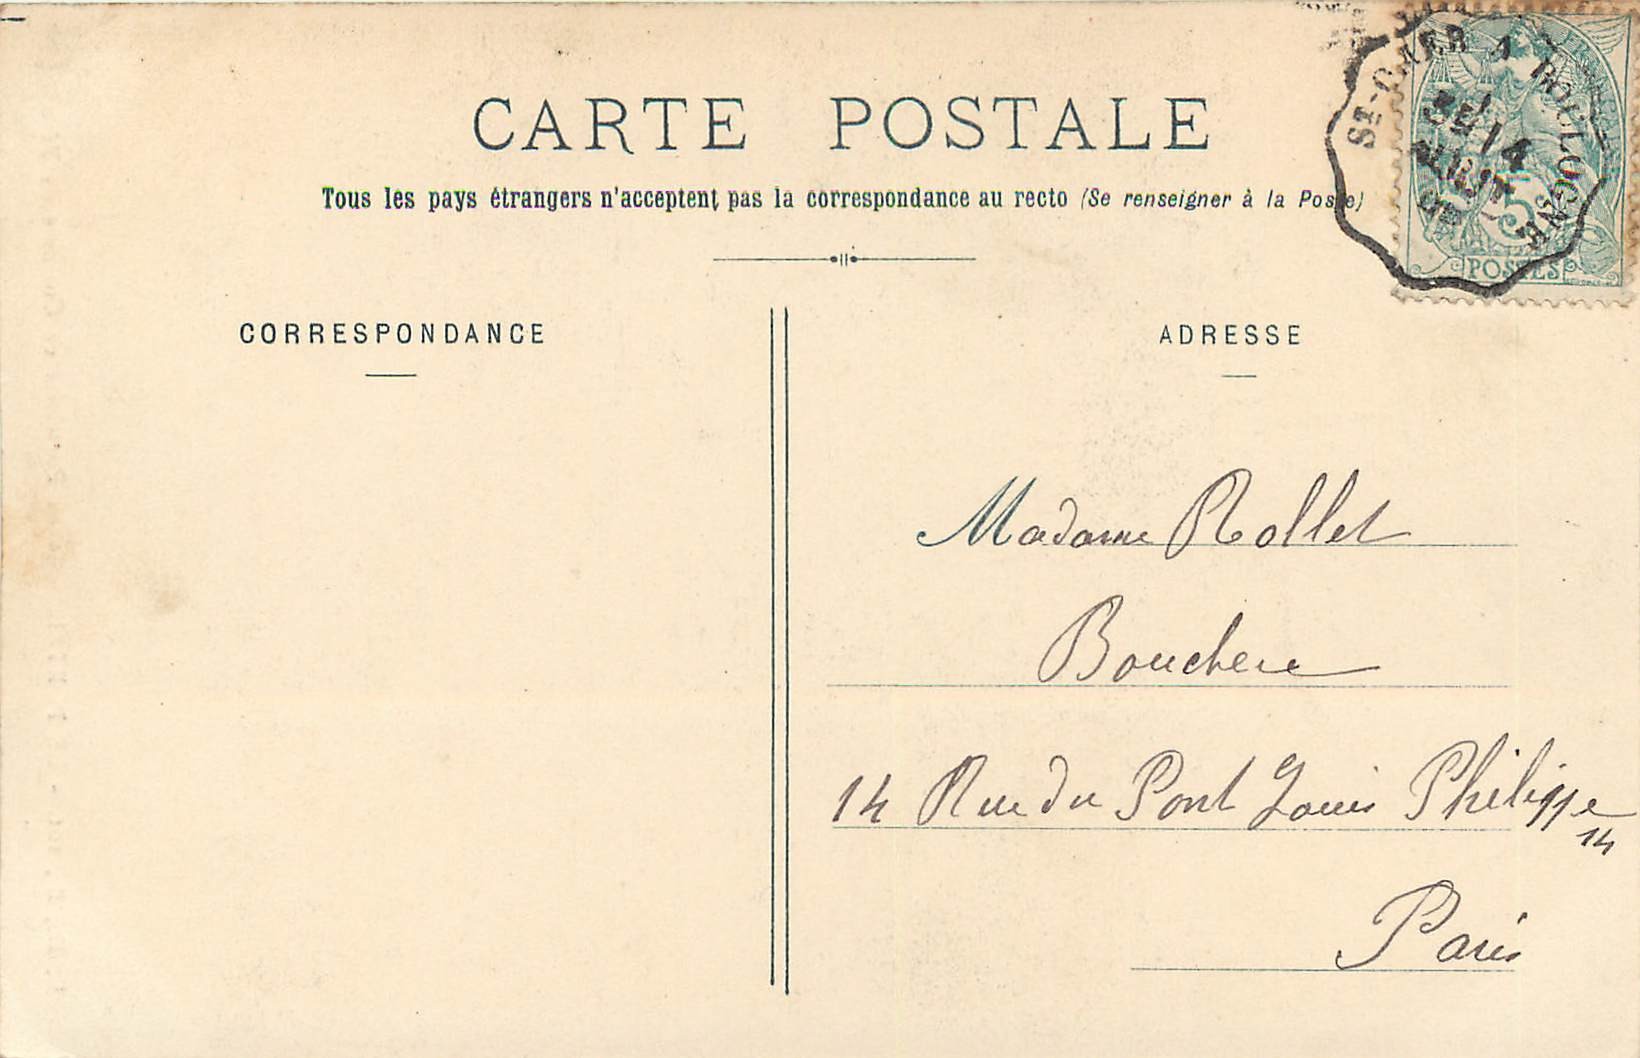 CARTE POSTALE
Tous les pays étrangers n'acceptent pas la correspondance au recto (Se renseigner à la Poste)
CORRESPONDANCE
ADRESSE
Madame Rollet
Bouchere
14 Rue du Pont Louis Philippe
14
Paris
ST-OMER A BOULOGNE
14
AOUT
5
POSTES